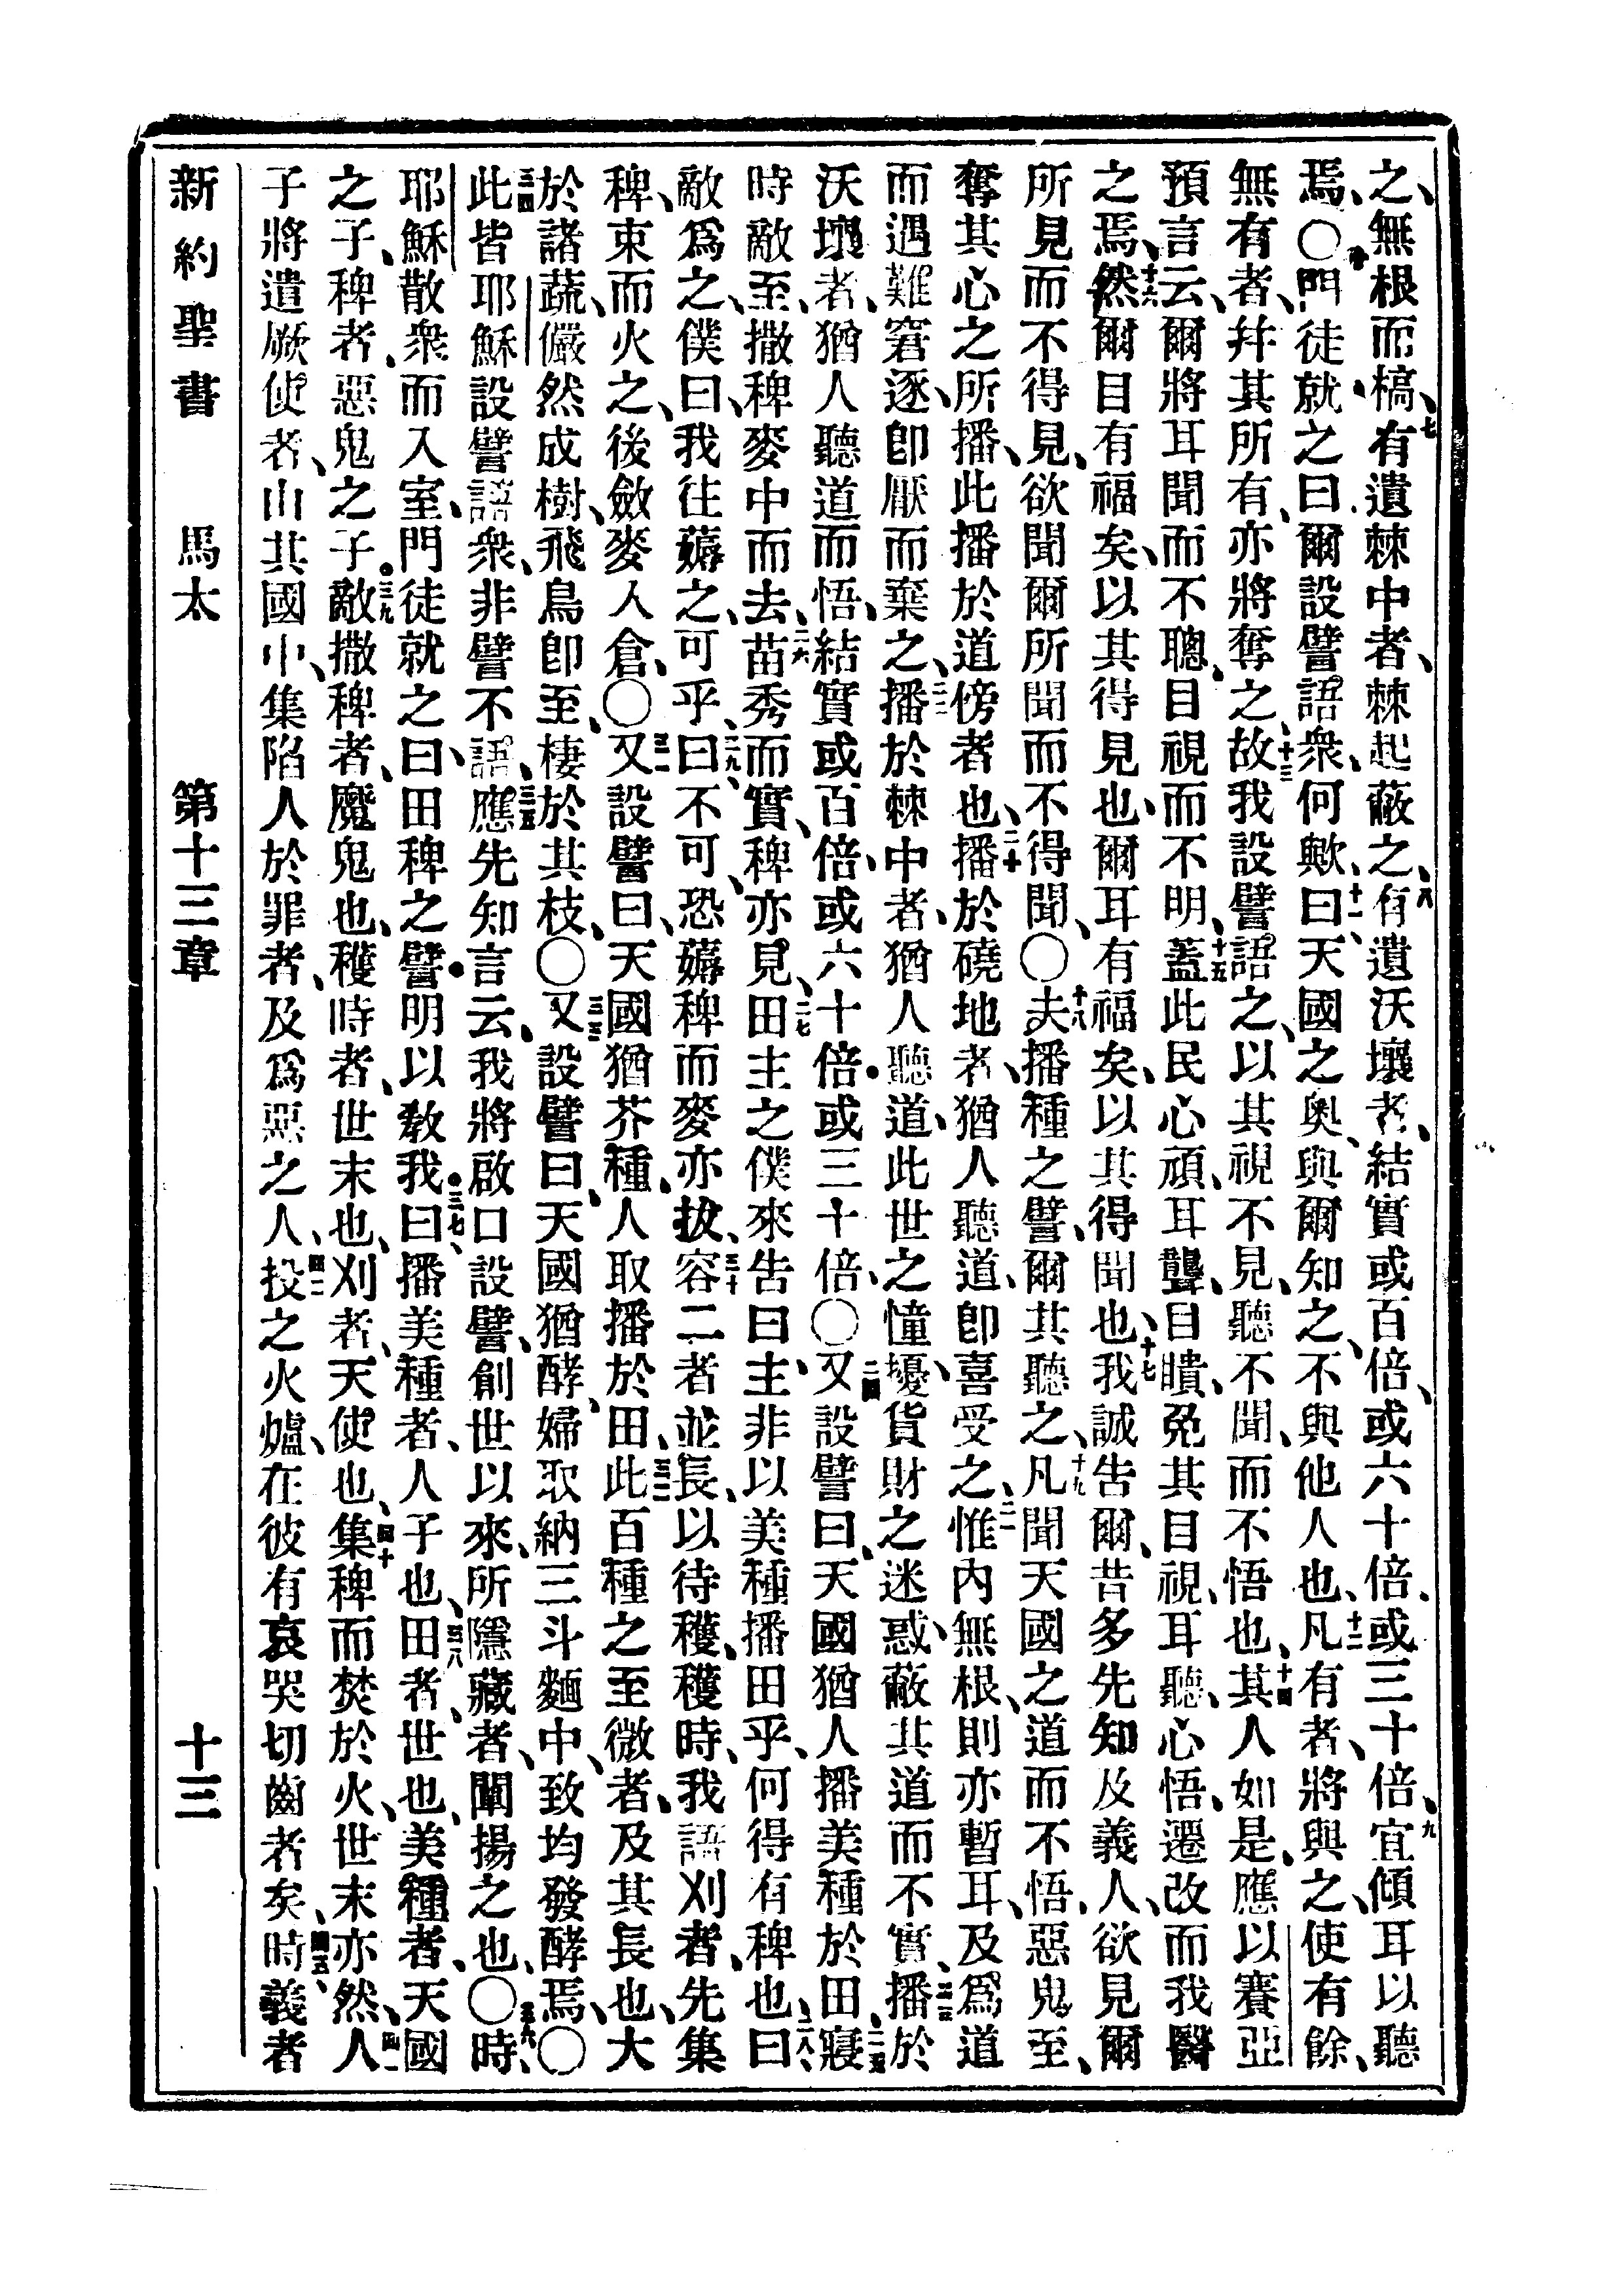 之、無根而槁、七有遺棘中者、棘起蔽之、八有遺沃壤者、結實或百倍、或六十倍、或三十倍、九宜傾耳以聽
焉、〇十門徒就之曰、爾設譬語衆、何歟、十一曰、天國之奧、與爾知之、不與他人也、十二凡有者、將與之、使有餘、
無有者、幷其所有、亦將奪之、十三故我設譬語之、以其視不見、聽不聞、而不悟也、十四其人如是、應以賽亞
預言云、爾將耳聞而不聰、目視而不明、十五蓋此民心頑、耳聾、目瞶、免其目視、耳聽、心悟、遷改、而我醫
之焉、十六然爾目有福矣、以其得見也、爾耳有福矣、以其得聞也、十七我誠告爾、昔多先知及義人、欲見爾
所見而不得見、欲聞爾所聞而不得聞、〇十八夫播種之譬、爾其聽之、十九凡聞天國之道而不悟、惡鬼至、
奪其心之所播、此播於道傍者也、二十播於磽地者、猶人聽道、卽喜受之、二一惟內無根、則亦暫耳、及爲道
而遇難窘逐、卽厭而棄之、二二播於棘中者、猶人聽道、此世之憧擾、貨財之迷惑、蔽其道而不實、二三播於
沃壤者、猶人聽道而悟、結實或百倍、或六十倍、或三十倍、〇二四又設譬曰、天國猶人播美種於田、二五寢
時敵至、撒稗麥中而去、二六苗秀而實、稗亦見、二七田主之僕來告曰、主、非以美種播田乎、何得有稗也、二八曰、
敵爲之、僕曰、我往薅之、可乎、二九曰、不可、恐薅稗而麥亦拔、三十容二者並長、以待穫、穫時、我語刈者、先集
稗、束而火之、後斂麥入倉、〇三一又設譬曰、天國猶芥種、人取播於田、三二此百種之至微者、及其長也、大
於諸蔬、儼然成樹、飛鳥卽至、棲於其枝、〇三三又設譬曰、天國猶酵、婦取納三斗麵中、致均發酵焉、〇
三四此皆耶穌設譬語衆、非譬不語、三五應先知言云、我將啟口設譬、創世以來、所隱藏者、闡揚之也、〇三六時、
耶穌散衆而入室、門徒就之曰、田稗之譬、明以敎我、三七曰、播美種者、人子也、三八田者、世也、美種者、天國
之子、稗者、惡鬼之子、三九敵撒稗者、魔鬼也、穫時者、世末也、刈者、天使也、四十集稗而焚於火、世末亦然、四一人
子將遣厥使者、由其國中、集陷人於罪者、及爲惡之人、四二投之火爐、在彼有哀哭切齒者矣、四三時義者
新約聖書　馬太　第十三章　十三